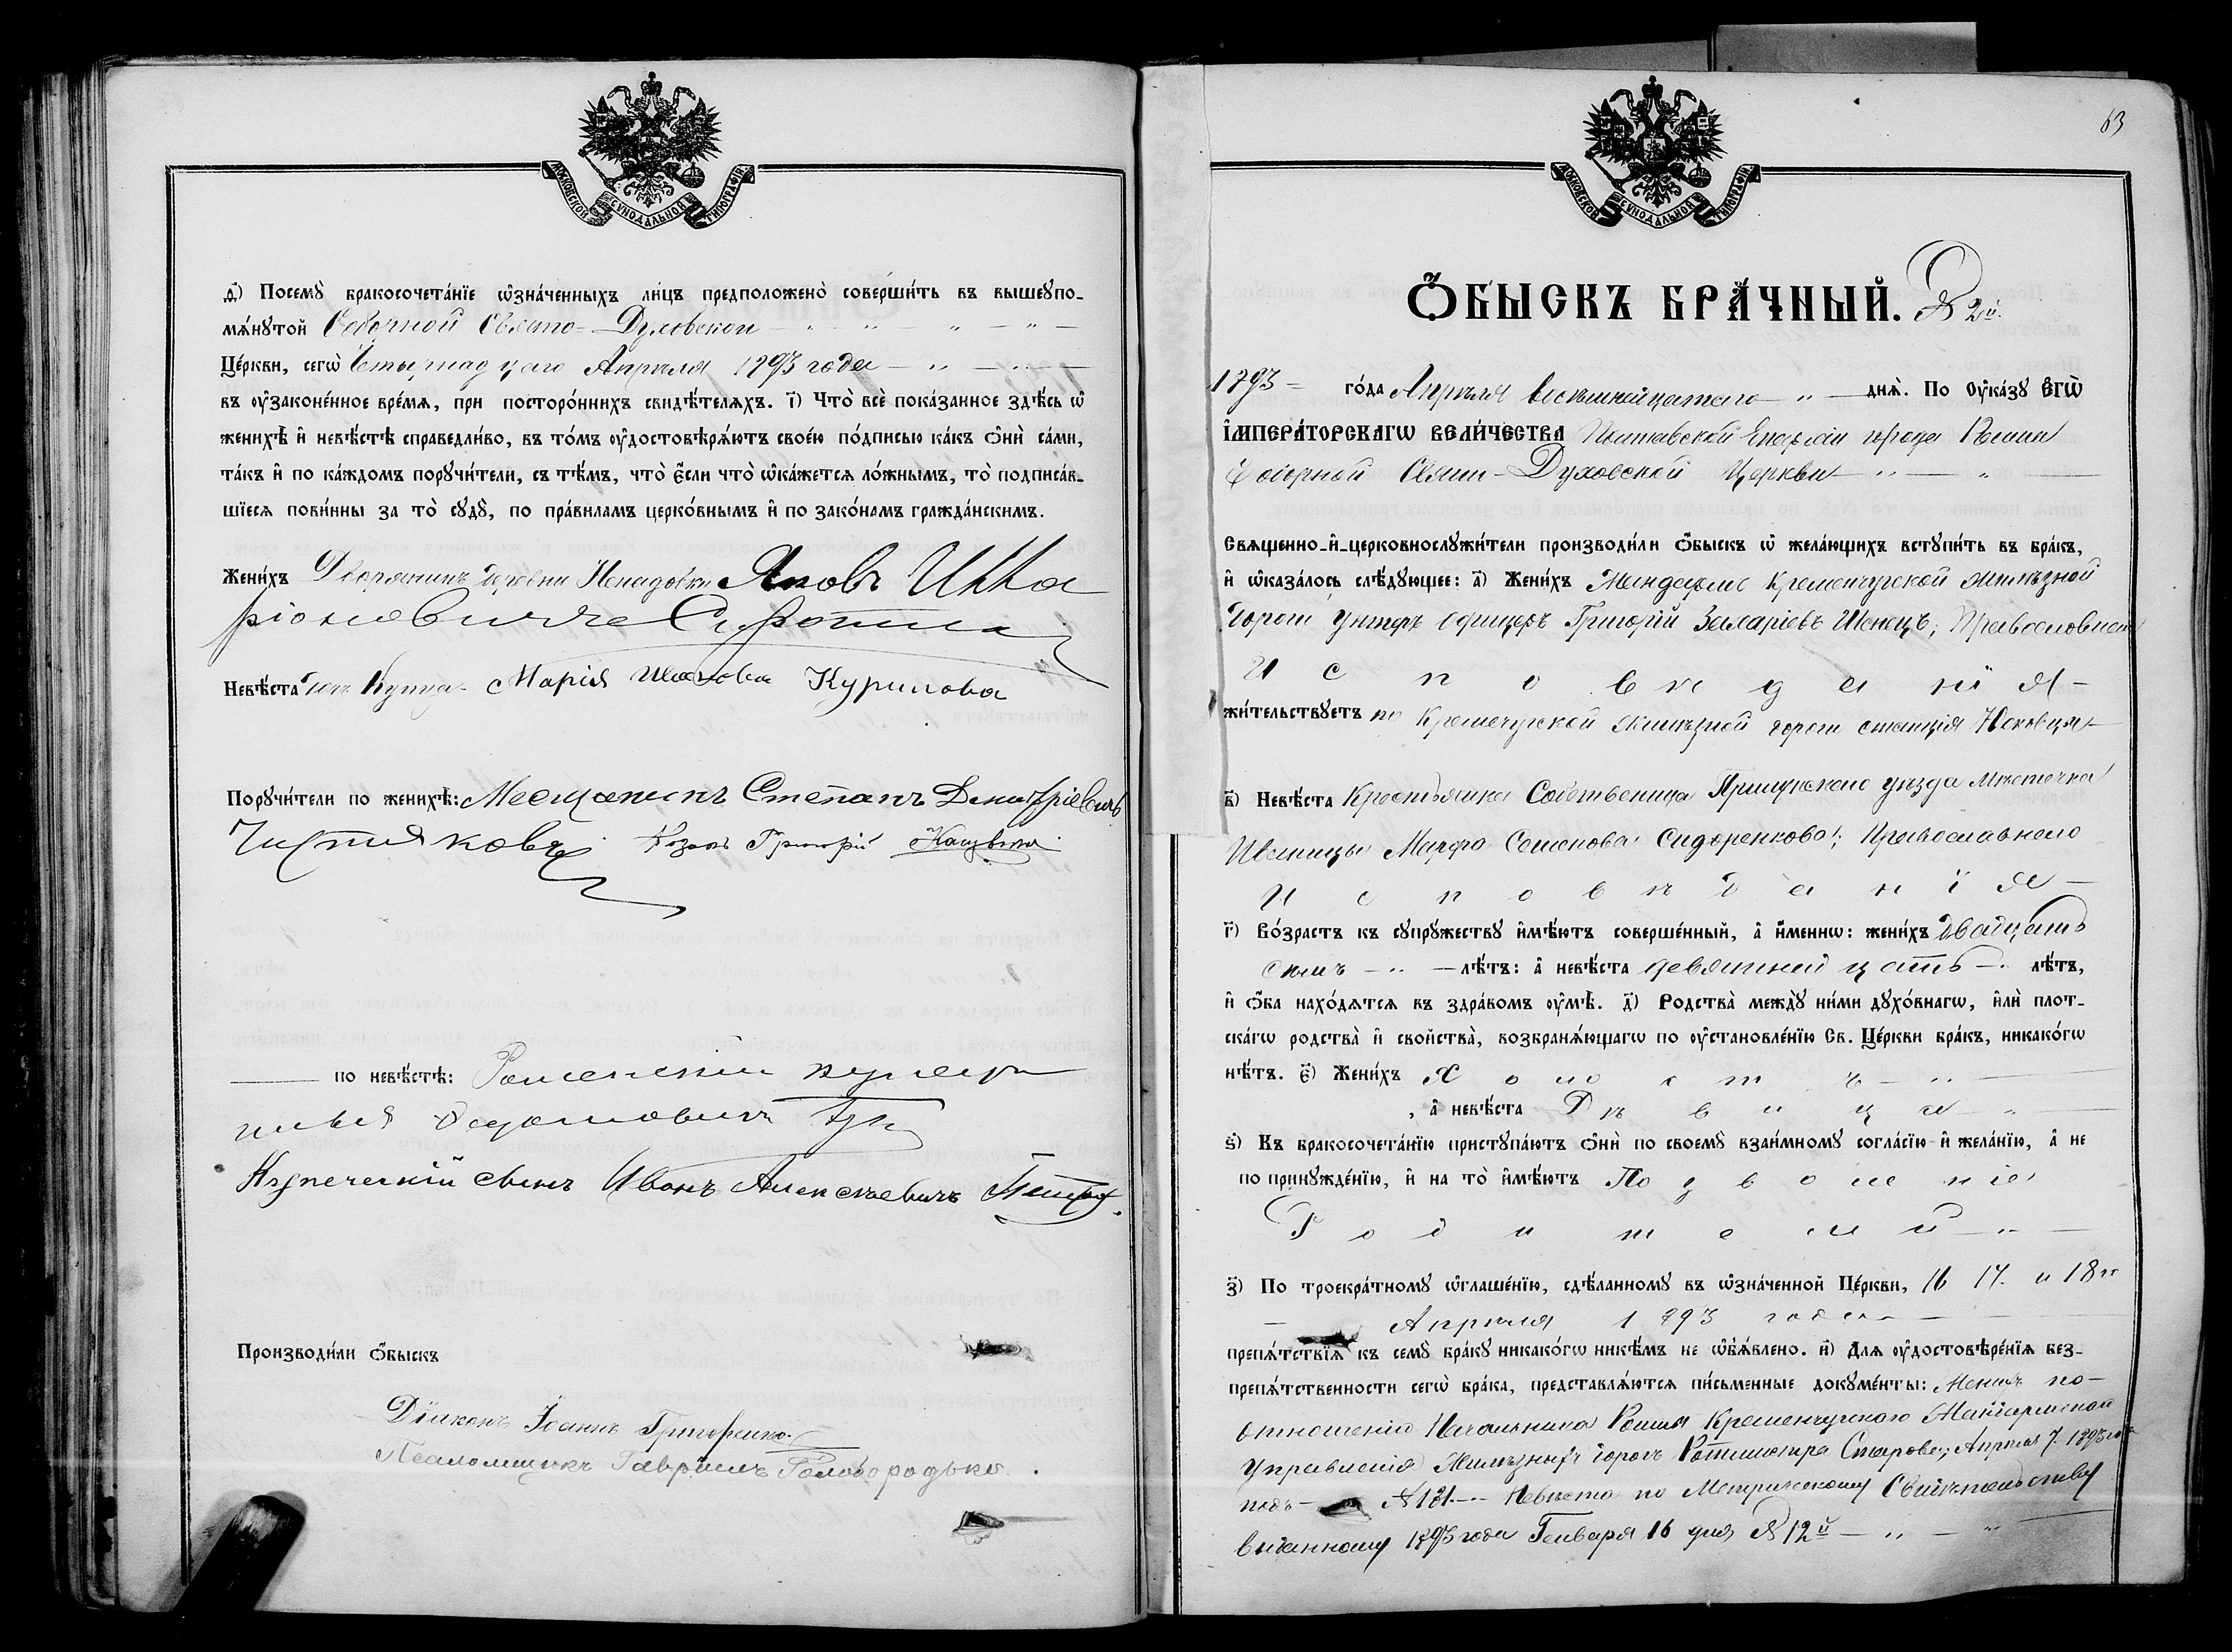 МОСКОВСКОЙ СѴНОДАЛЬНОЙ ТИПОГРАФІИ
д҃і) Посемꙋ̀ бракосочета́нїе ѡ҆зна́ченныхъ ли́цъ предположено̀ соверши́ть въ вышеꙋпо-
мѧ́нꙋтой Соборной Свято-Духовской
Це́ркви, сегѡ̀ Апрѣля 1893 года
въ ᲂу҆законе́нное вре́мѧ, при посторо́ннихъ свидѣ́телѧхъ. і҃) Что̀ всѐ пока́занное здѣ́сь ѡ҆
женихѣ̀ и҆ невѣ́стѣ справедли́во, въ то́мъ ᲂу҆достовѣрѧ́ютъ свое́ю по́дписью ка́къ ѻ҆нѝ са́ми,
та́къ и҆ по ка́ждомъ порꙋчи́тели, съ тѣ́мъ, что̀ є҆́сли что̀ ѡ҆ка́жетсѧ ло́жнымъ, то̀ подписа́в-
шїесѧ пови́нны за то̀ сꙋдꙋ̀, по пра́виламъ церко́внымъ и҆ по зако́намъ гражда́нскимъ.
Жени́хъ Дворянинъ деревни Яковъ
Невѣ́ста Купца Марія Иванова Курилова
Порꙋчи́тели по женихѣ̀: Мещанинъ Степанъ Дмитріевичъ
Чистяковъ Козакъ Григорій
по невѣ́стѣ: Роменскій
Купеческій сынъ Иванъ Алексѣевичъ
Производи́ли ѻ҆́быскъ
Діаконъ Іоаннъ Григоренко.
Псаломщикъ Гавріилъ Голобородько.
63
МОСКОВСКОЙ СѴНОДАЛЬНОЙ ТИПОГРАФІИ
Ѻ҆́БЫСКЪ БРА́ЧНЫЙ. № 2й.
1893 го́да Апрѣля восемнайцатаго днѧ̀. По ᲂу҆ка́зꙋ Є҆ГѠ̀
І҆МПЕРА́ТОРСКАГѠ ВЕЛИ́ЧЕСТВА Полтавской Епархіи города Ромна
Соборной Свято-Духовской Церкви
Свѧще́нно-и҆-церковнослꙋжи́тели производи́ли ѻ҆́быскъ ѡ҆ жела́ющихъ встꙋпи́ть въ бра́къ,
и҆ ѡ҆каза́лось слѣ́дꙋющее: а҃) Жени́хъ Жандармъ Кременчугской желѣзной
дороги унтеръ офицеръ Григорій Захаріевъ Православнаго
И с п о в ѣ д а н і я
жи́тельствꙋетъ по Кременчугской желѣзной дороги станція
в҃) Невѣ́ста Крестьянка Собственица Прилукскаго уѣзда мѣстечка
Иваницы Марфа Семенова Сидоренкова; Православнаго
И с п о в ѣ д а н і я
г҃) Во́зрастъ къ сꙋпрꙋ́жествꙋ и҆мѣ́ютъ соверше́нный, а҆ и҆́меннѡ: жени́хъ двадцать
семъ лѣ́тъ: а҆ невѣ́ста девятнайцать лѣ́тъ,
и҆ ѻ҆́ба нахо́дѧтсѧ въ здра́вомъ ᲂу҆мѣ̀. д҃) Родства̀ междꙋ̀ ни́ми дꙋхо́внагѡ, и҆лѝ плот-
ска́гѡ родства̀ и҆ сво́йства̀, возбранѧ́ющагѡ по ᲂу҆становле́нїю Св. Це́ркви бра́къ, никако́гѡ
нѣ́тъ. є҃) Жени́хъ Х о л о с т ъ
, а҆ невѣ́ста Д ѣ в и ц а
ѕ҃) Къ бракосочета́нїю пристꙋпа́ютъ ѻ҆нѝ по своемꙋ̀ взаи́мномꙋ согла́сїю и҆ жела́нїю, а҆ не
по принꙋжде́нїю, и҆ на то̀ и҆мѣ́ютъ
Р о д и т е л и й
з҃) По троекра́тномꙋ ѡ҆глаше́нїю, сдѣ́ланномꙋ въ ѡ҆зна́ченной Це́ркви, 16 17. и 18го
Апрѣля 1893 года
препѧ́тствїѧ къ семꙋ̀ бра́кꙋ никако́гѡ никѣ́мъ не ѡ҆бъѧ́влено. и҃) Длѧ ᲂу҆достовѣре́нїѧ без-
препѧ́тственности сегѡ̀ бра́ка, представлѧ́ютсѧ пи́сьменные докꙋме́нты: Жених по
отношенію Начальника Кременчугскаго Жандармскаго
Управленія Желѣзныхъ дорогъ Ротмистра Апрѣля 7. 1893 года
подъ № 131. Невѣста по Метрическому Свидѣтельству
выданному 1893 года Генваря 16 дня № 12й